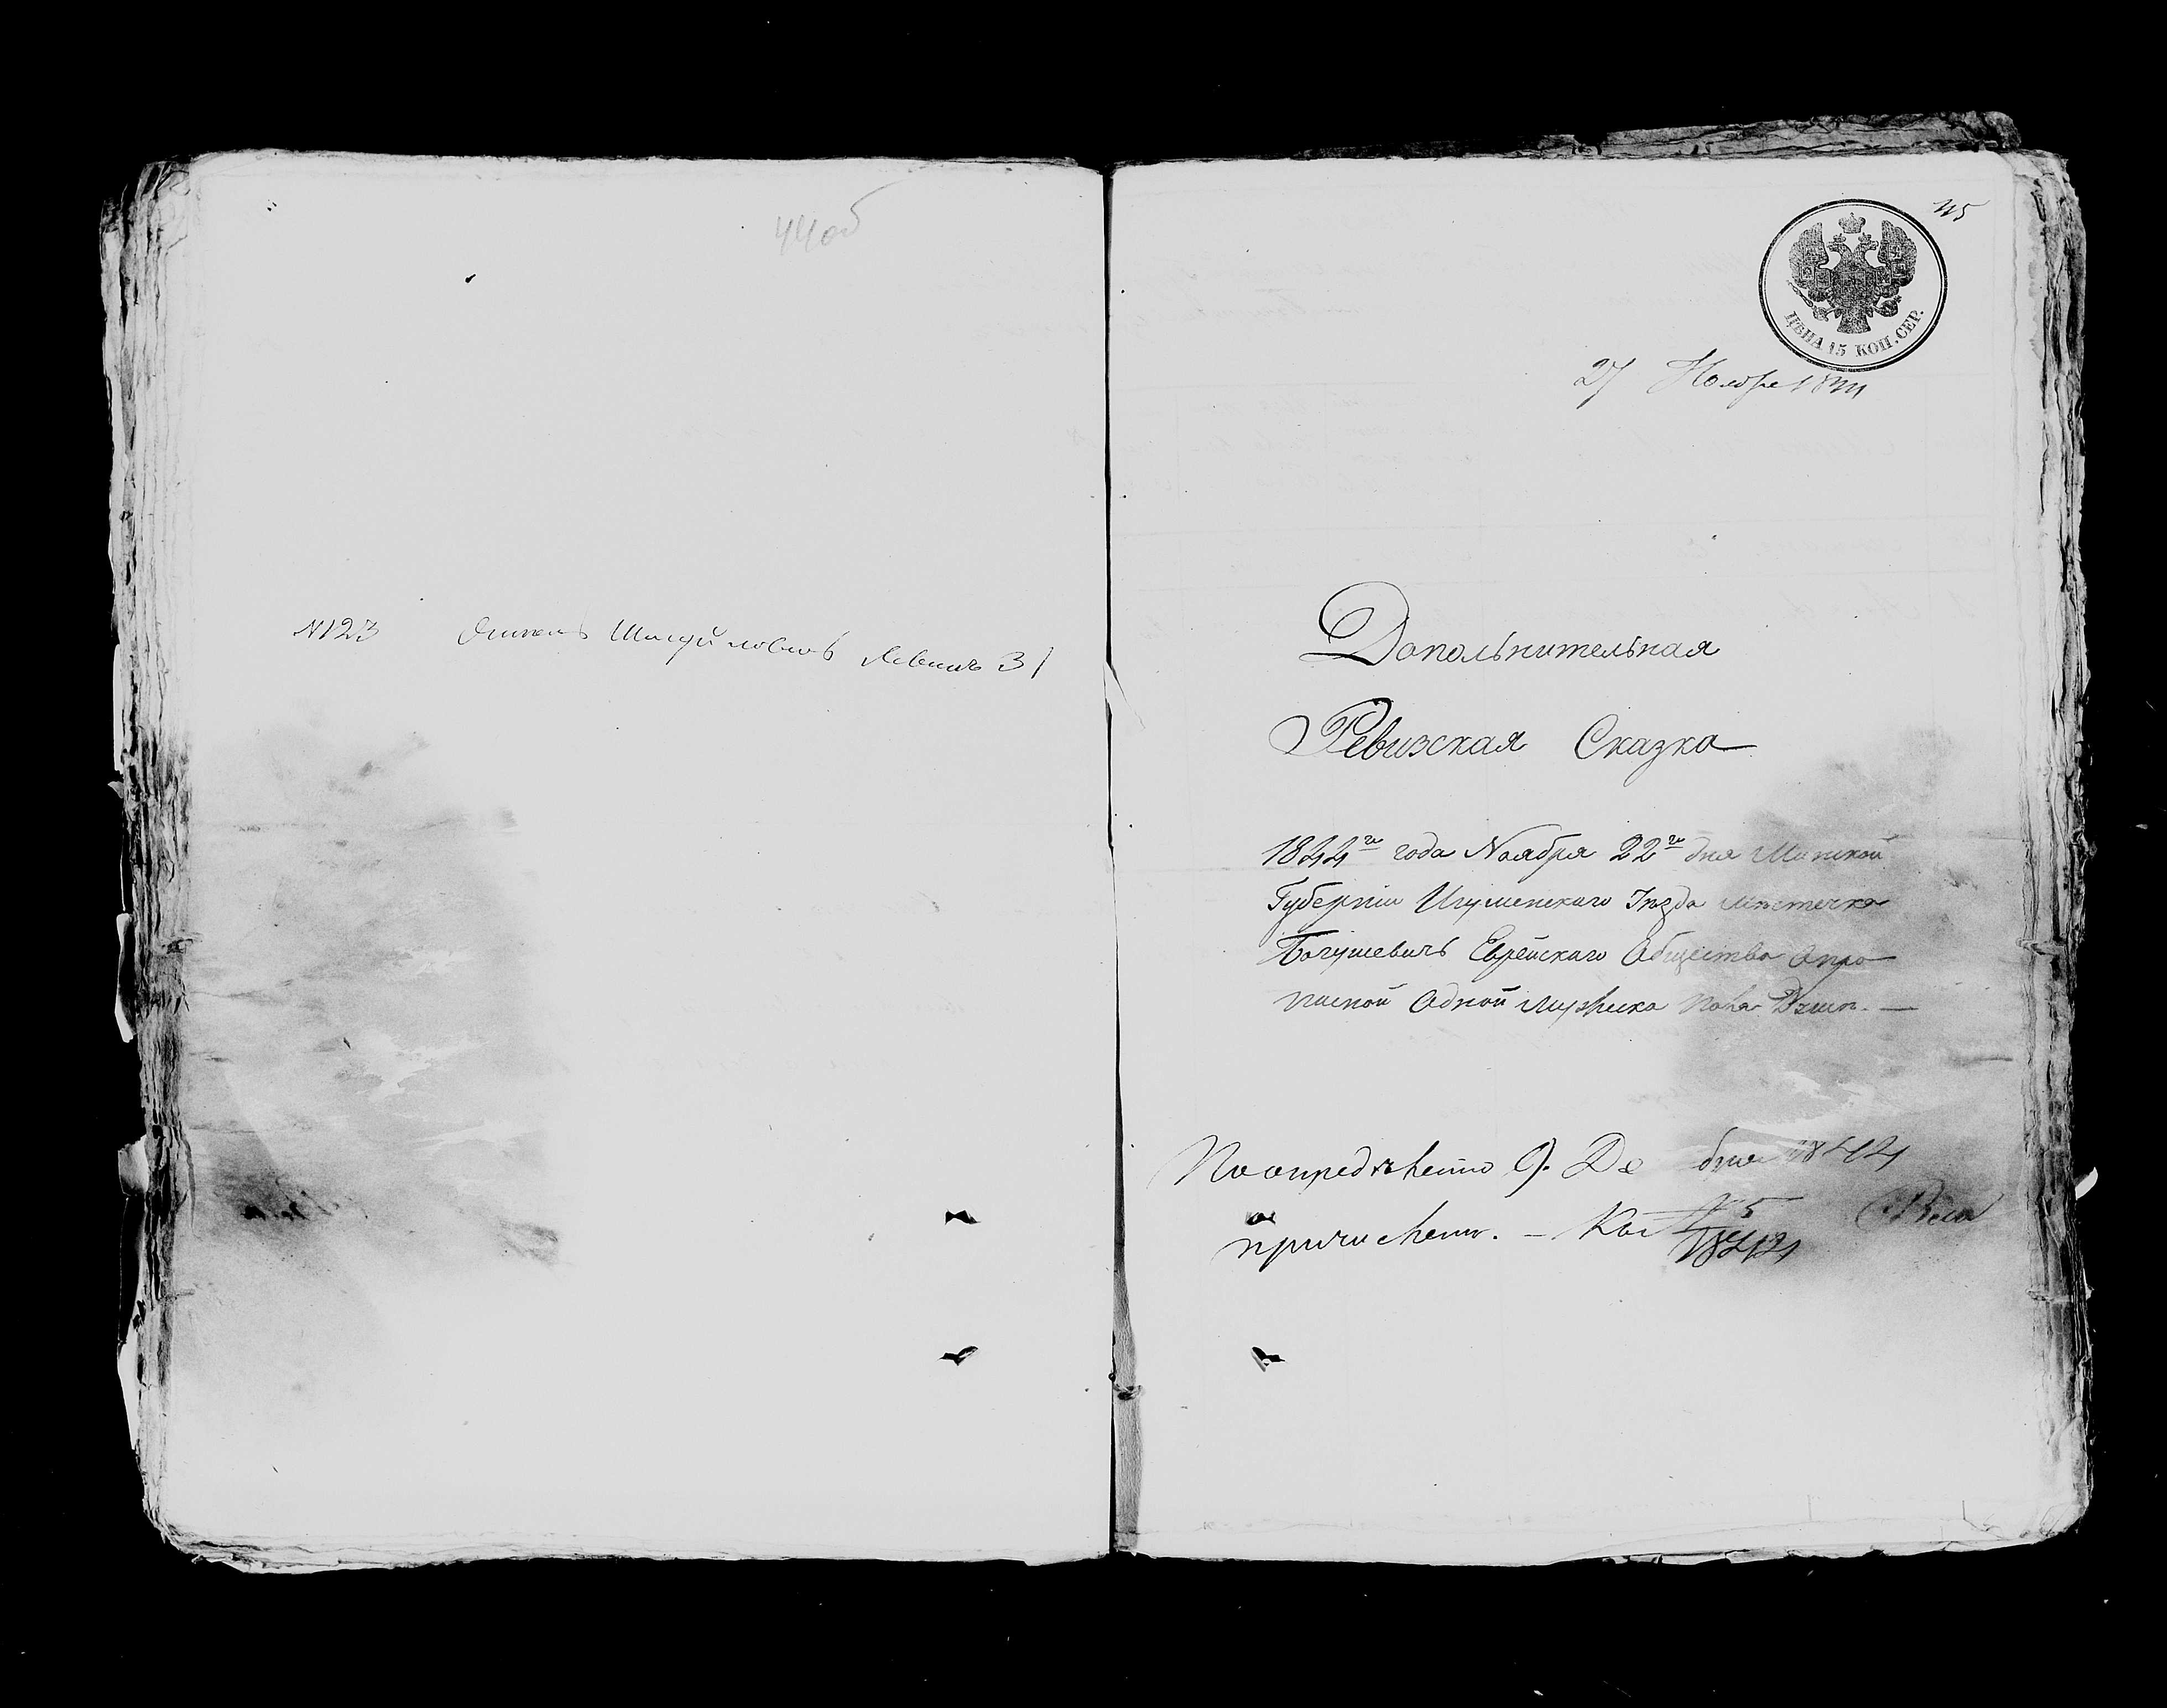 44об
№ 123 Шмуйловичъ Левинъ 31
45
ЦѢНА 15 КОП. СЕР.
27 Ноября 1844
Допольнительная
Ревизская Сказка
1844го года Ноября 22го дня Минской
Губернiи Игуменскаго Уѣзда мѣстечка
Богушевичъ Еврейскаго Общества о про
писной одной мужеска пола Дѣши. —
По опредѣленiю 9. Де бря 1844
причислены. —
1844